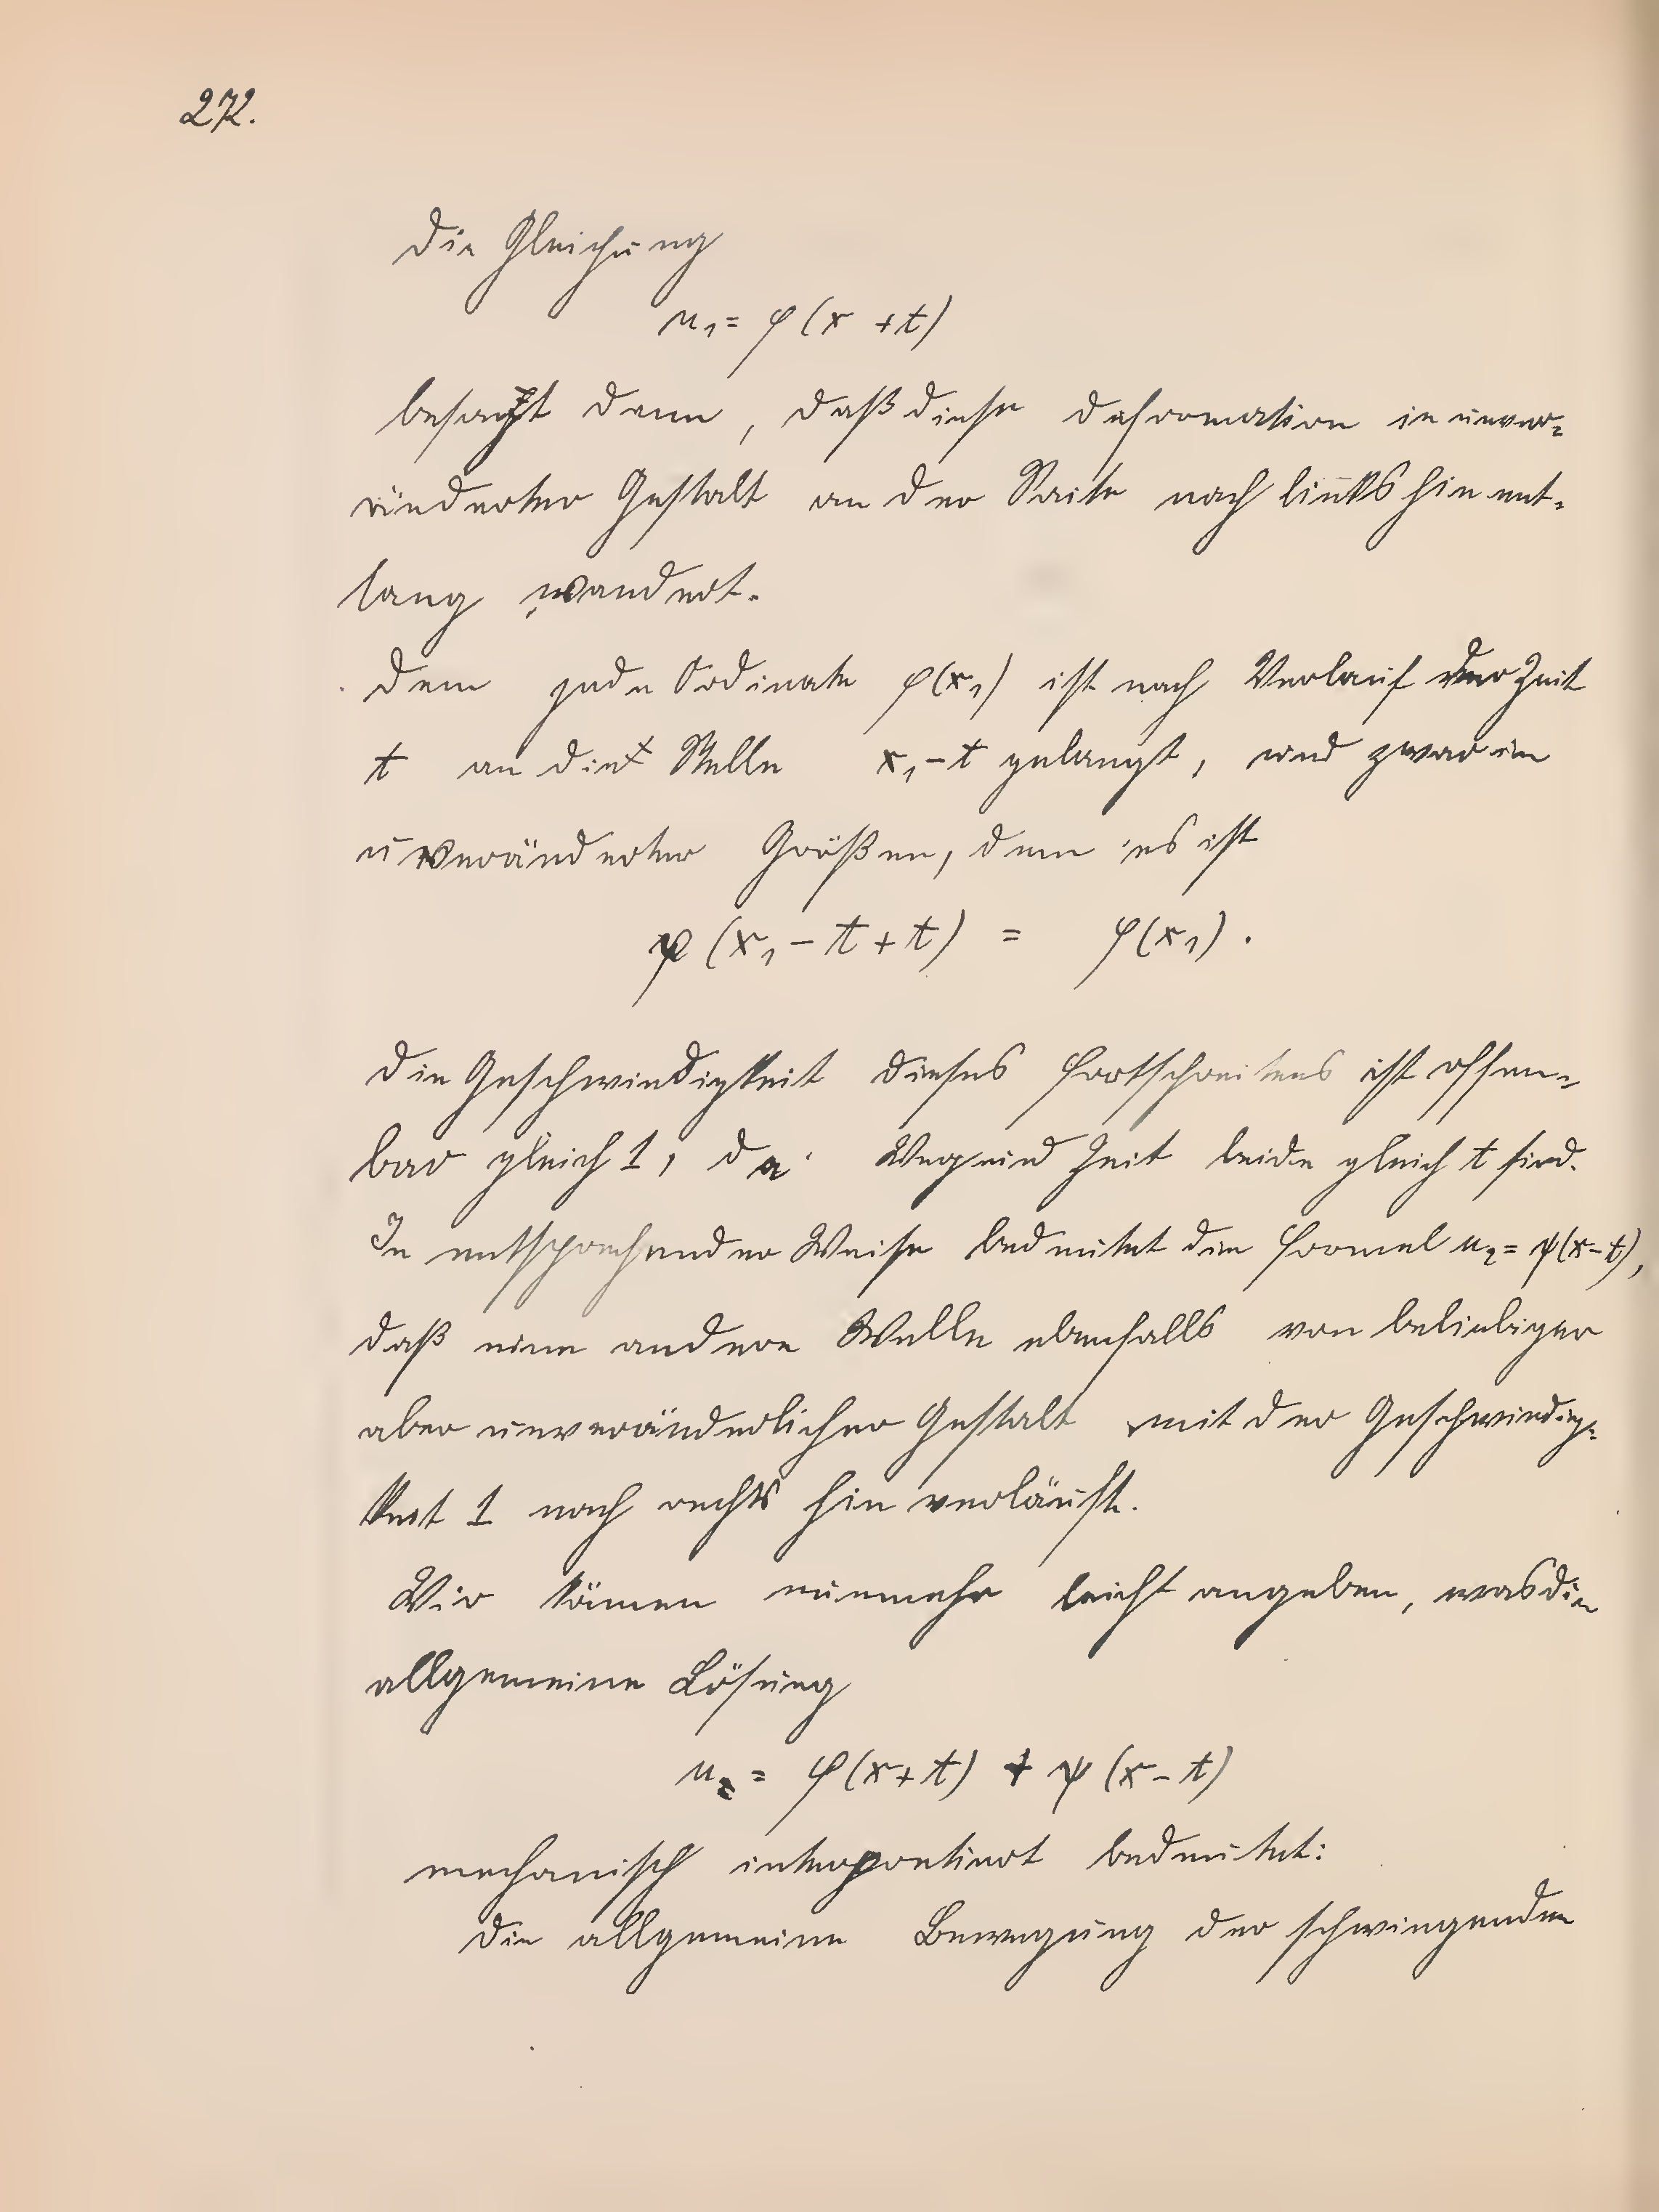 272.
Die Gleichung
u₁ = φ(x + t)
besagt dann, daß diese Deformation in unver=
änderter Gestalt an der Saite nach links hin ent=
lang wandert.
Denn jede Ordinate φ(x₁) ist nach Verlauf der Zeit
t an die Stelle x₁ - t gelangt, und zwar in
unveränderter Größen, denn es ist
φ(x₁ - t + t) = φ(x₁).
Die Geschwindigkeit dieses Fortschreitens ist offen=
bar gleich 1, da Weg und Zeit beide gleich t sind.
In entsprechender Weise bedeutet die Formel u₂ = ψ(x - t),
daß eine andere Welle ebenfalls von beliebiger
aber unveränderlicher Gestalt mit der Geschwindig=
keit 1 nach rechts hin verläuft.
Wir können nunmehr leicht angeben, was die
allgemeine Lösung
u₂ = φ(x + t) + ψ(x - t)
mechanisch interpretiert bedeutet:
Die allgemeine Bewegung der schwingenden